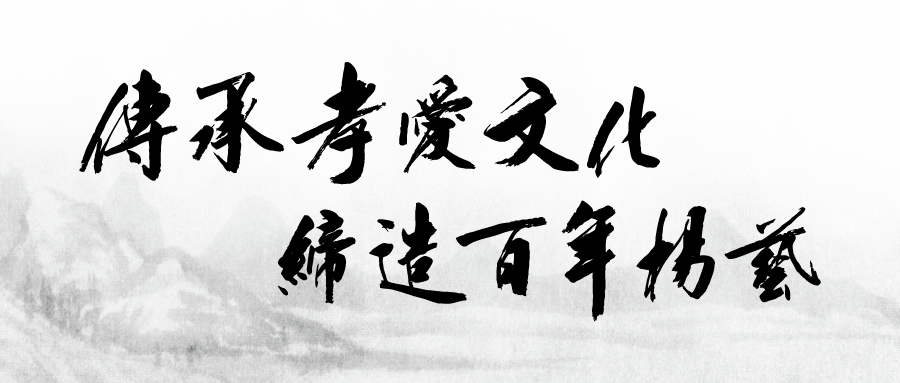 傳承孝愛文化
締造百年楊藝